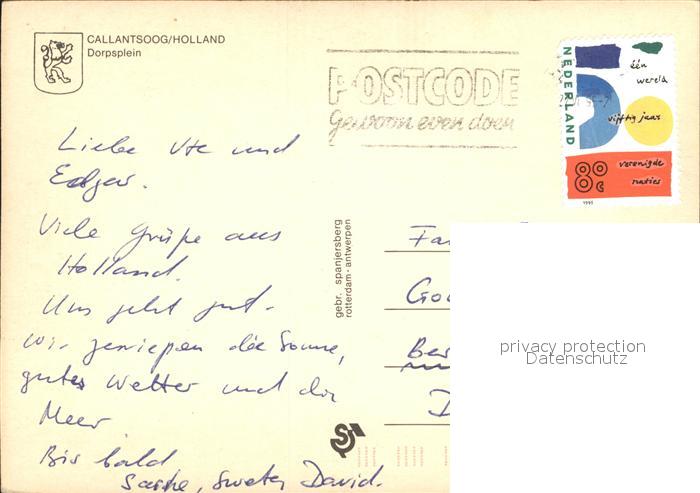 CALLANTSOOG/HOLLAND
Dorpsplein
POSTCODE
Gewoon even doen
NEDERLAND
één
wereld
vijftig jaar
verenigde
naties
80c
1995
Liebe Ute und
Edgar.
Viele Grüße aus
Holland.
Uns geht gut.
Wir genießen die Sonne,
gutes Wetter und das
Meer
Bis bald
David.
gebr. spanjersberg
rotterdam - antwerpen
Fa
Go
Be
D
privacy protection
Datenschutz